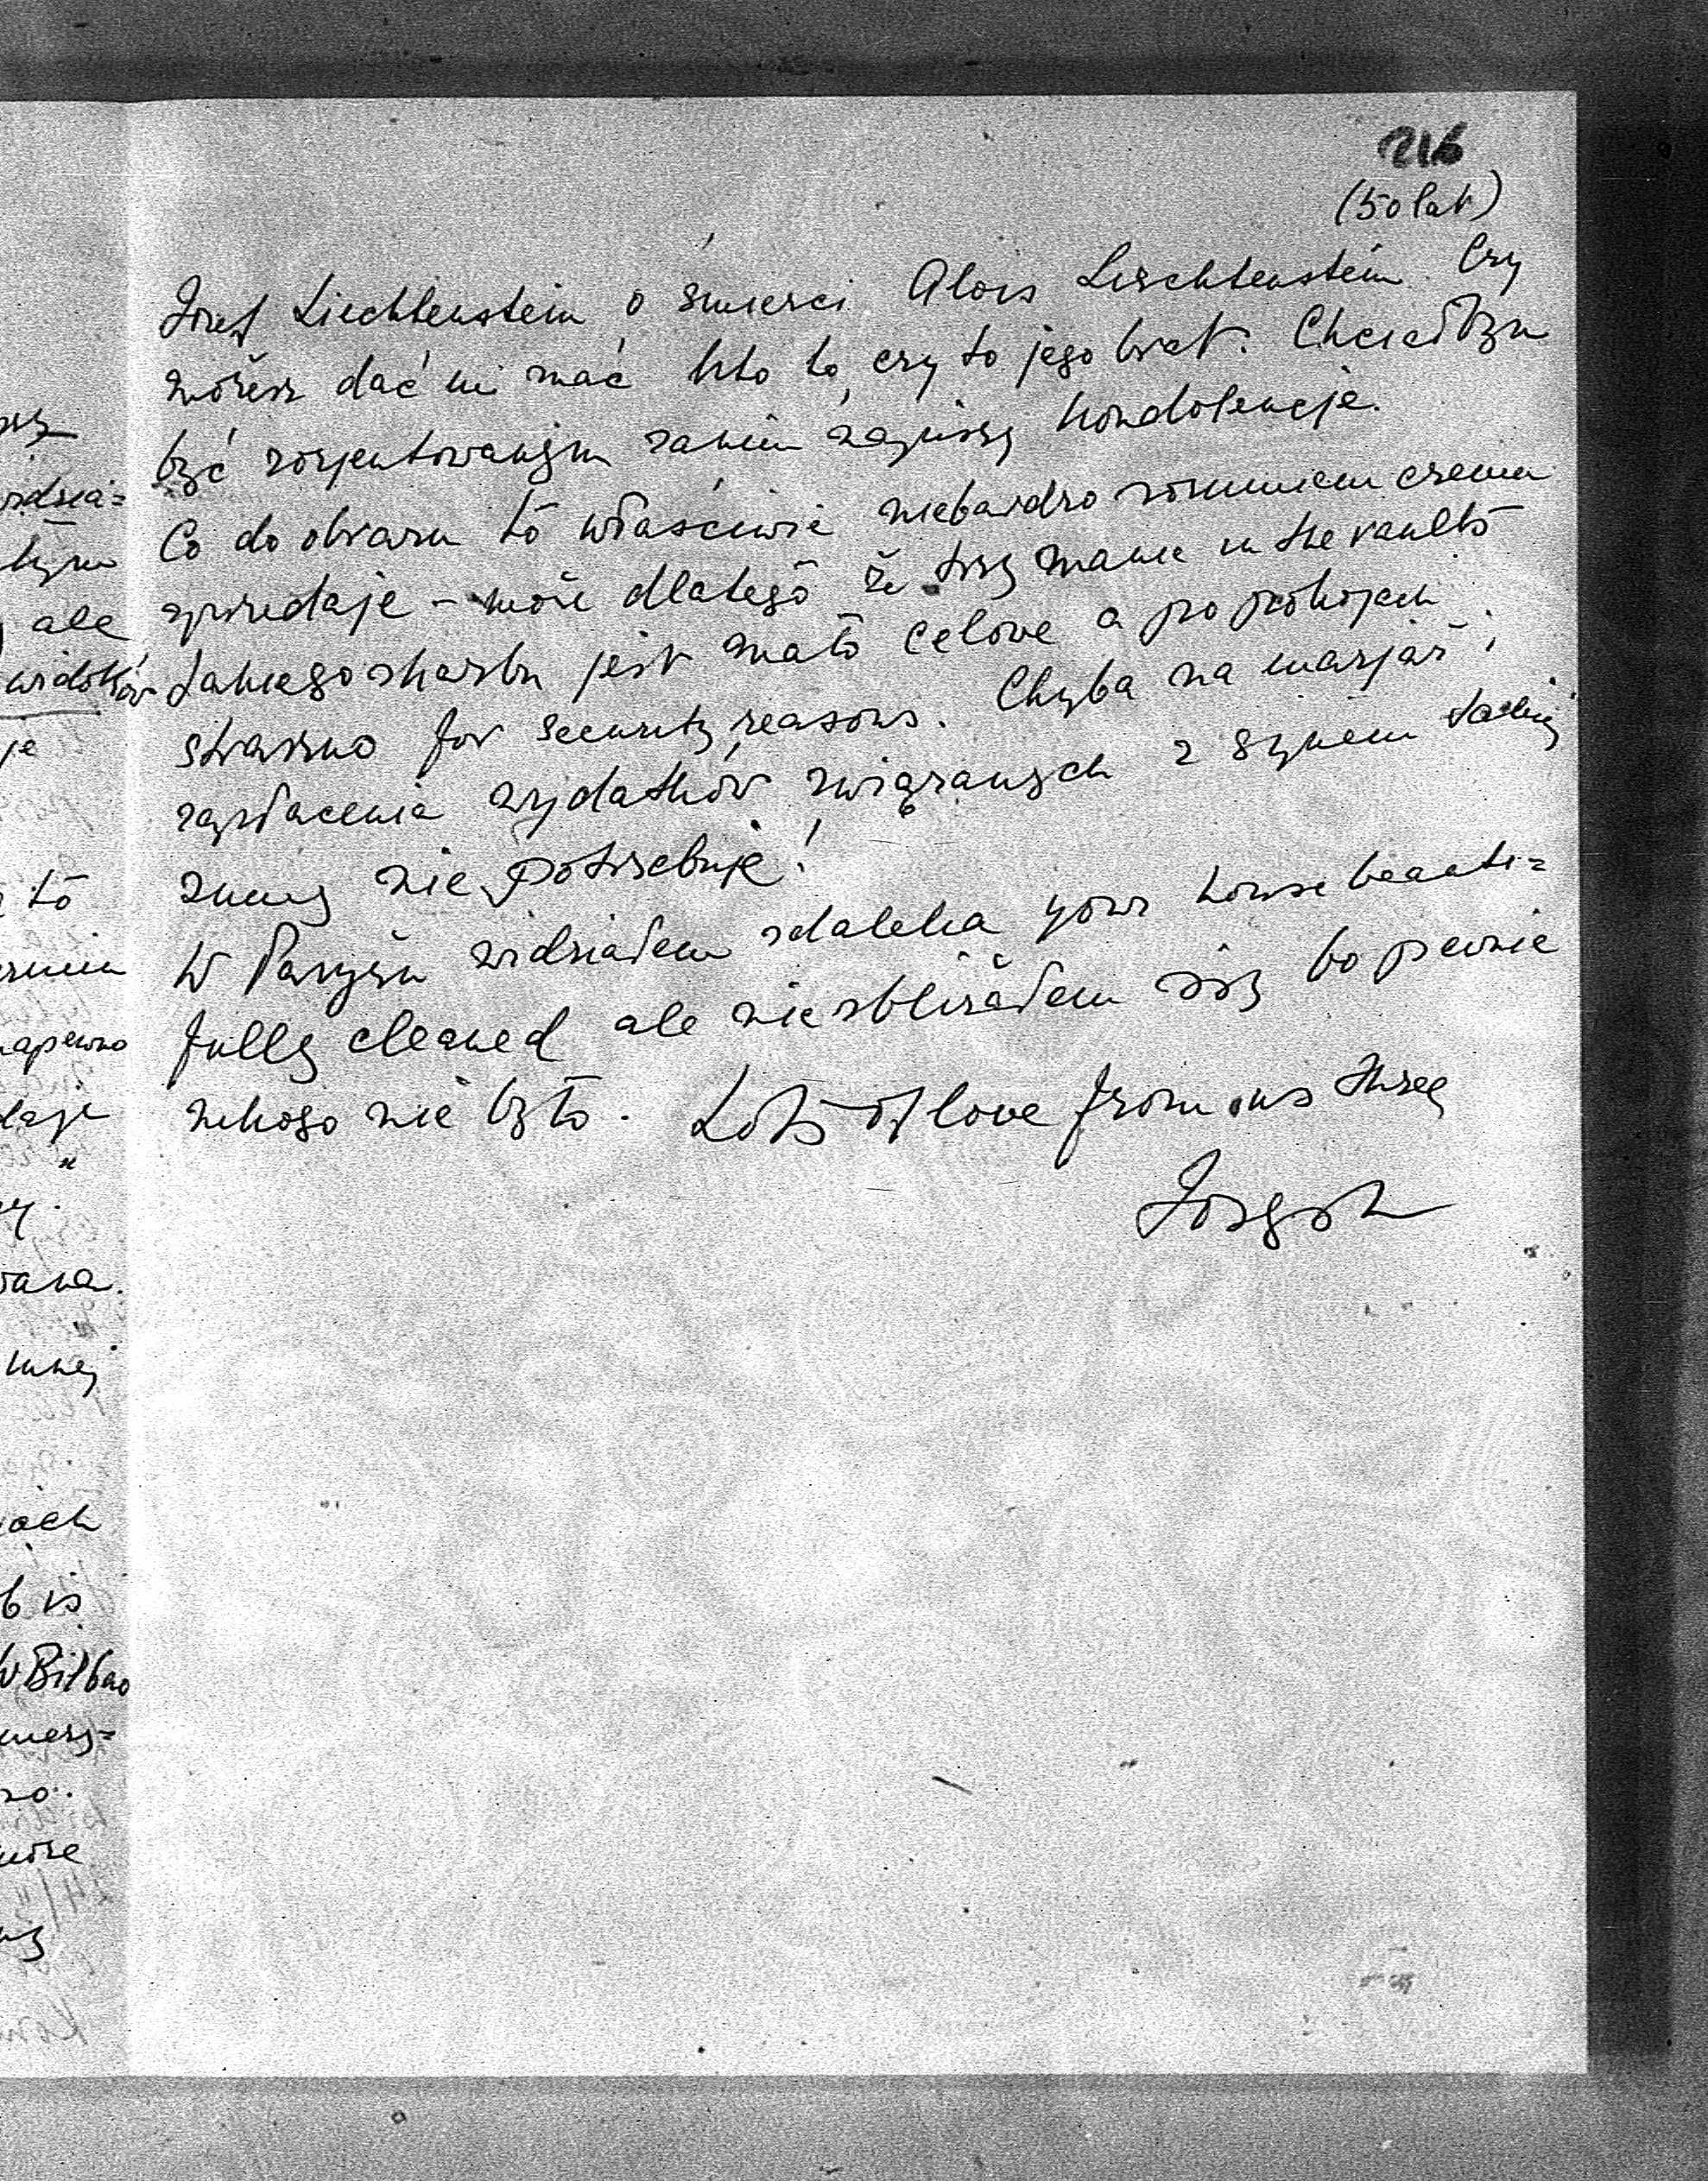 216
(50 lat)
Józef Liechtenstein o śmierci Alois Liechtenstein. Czy
możesz dać mi znać kto to, czy to jego brat. Chciałbym
być zorjentowanym zanim napiszę kondolencje.
Co do obrazu to właściwie niebardzo rozumiem czemu
sprzedaje – może dlatego że trzymanie in the vaults
takiego skarbu jest mało celowe a po pokojach
straszno for security reasons. Chyba na marjaż i
zapłacenia wydatków związanych z synem takiej
sumy nie potrzebuje!
W Paryżu widziałem zdaleka your house beauti=
fully cleaned ale nie zbliżałem się bo pewnie
nikogo nie było. Lots of love from us three
ale
to
napewno
w Bilbao